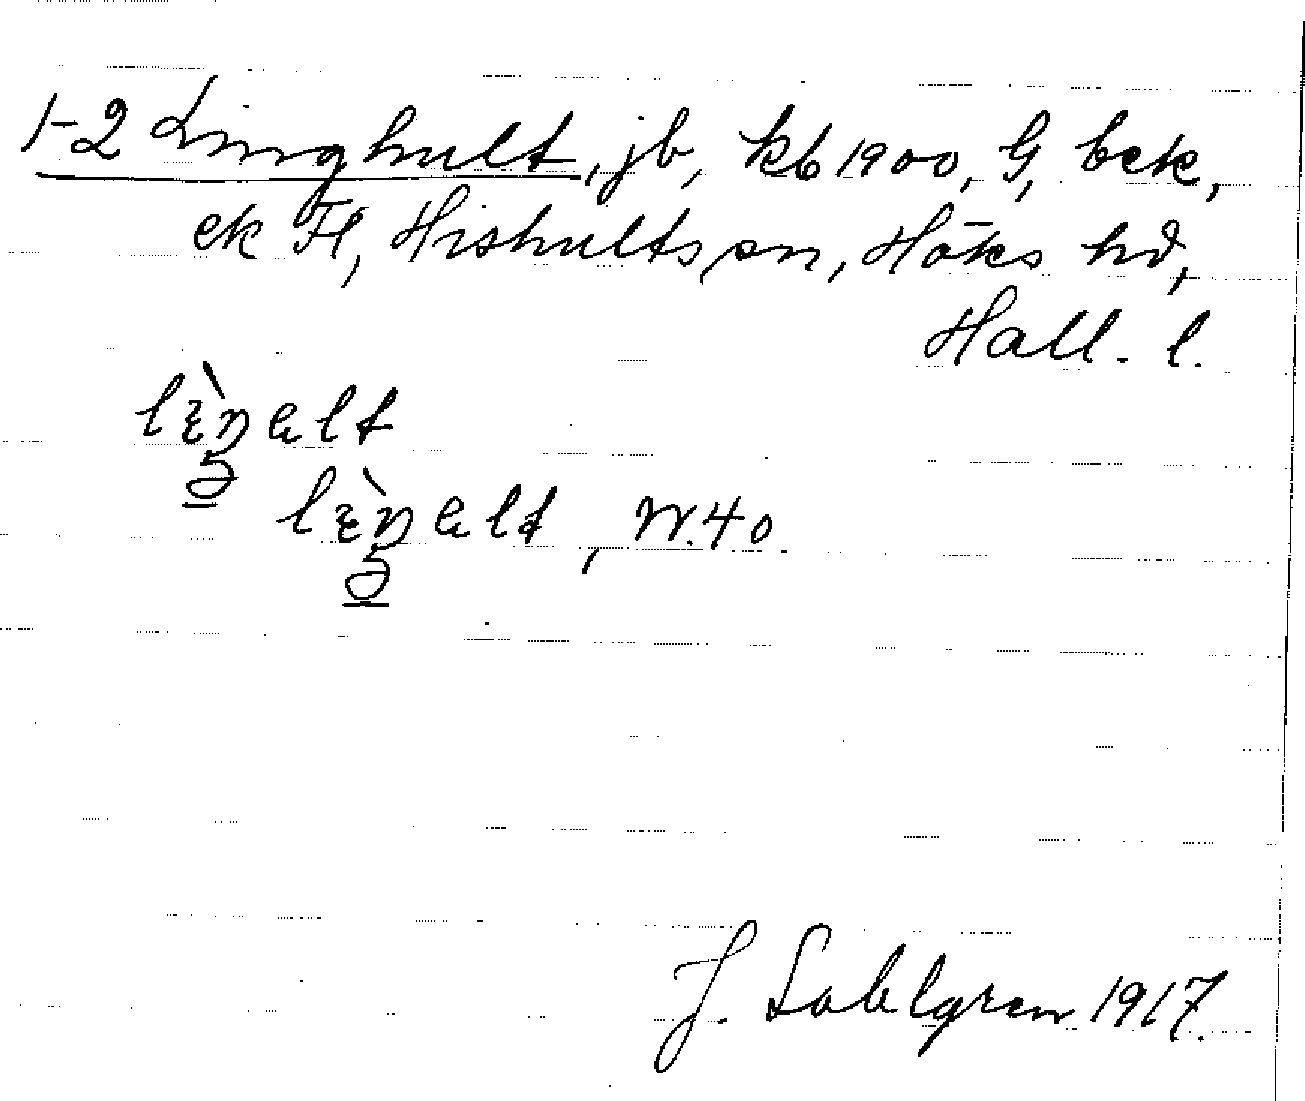 1-2 Linghult, jb, kb 1900, G, bek,
ek Fl, Hishults sn, Höks hd,
Hall. l.
, W. 40
J. Sahlgren 1917.